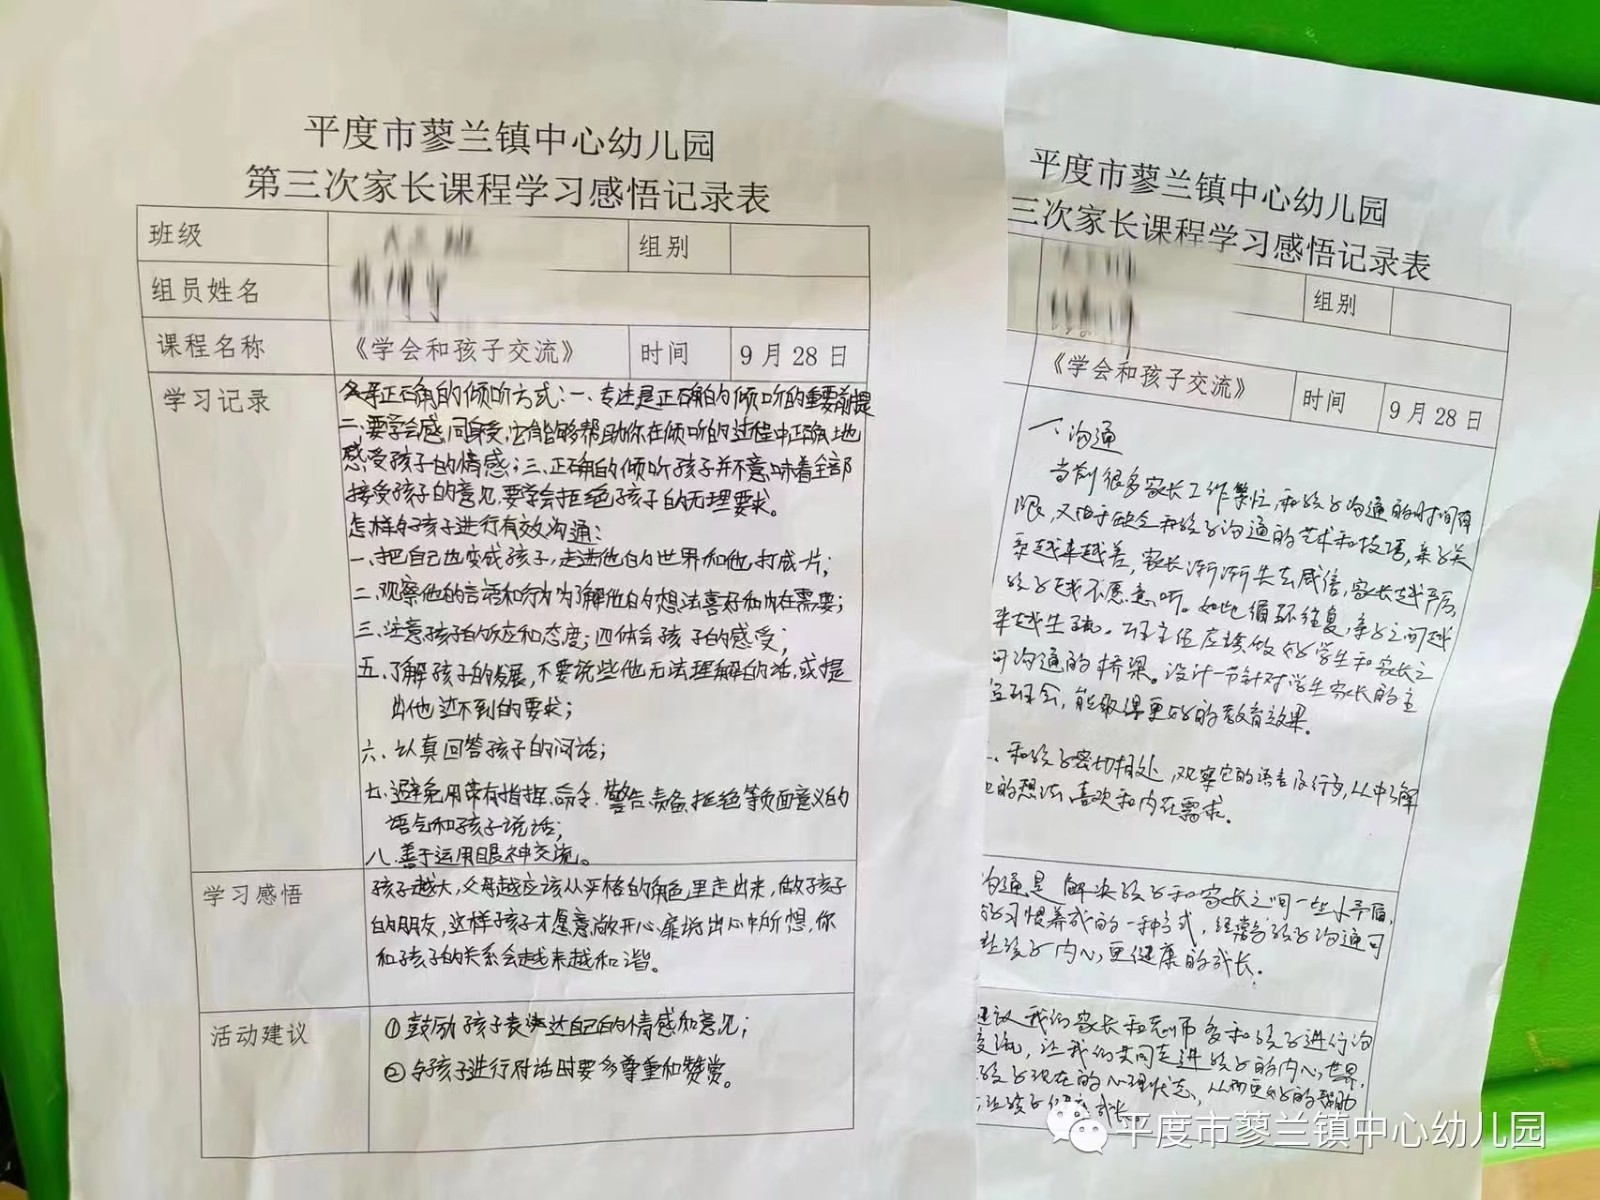 平度市蓼兰镇中心幼儿园
第三次家长课程学习感悟记录表
班级
组别
组员姓名
课程名称
《学会和孩子交流》
时间
9月28日
学习记录
正确的倾听方式：一、专注是正确的倾听的重要前提
二、要学会感同身受，它能够帮助你在倾听的过程中正确地
感受孩子的情感；三、正确的倾听孩子并不意味着全部
接受孩子的意见，要学会拒绝孩子的无理要求。
怎样与孩子进行有效沟通：
一、把自己也变成孩子，走进他的世界和他打成一片；
二、观察他的言语和行为了解他的想法喜好和内在需要；
三、注意孩子的反应和态度；四、体会孩子的感受；
五、了解孩子的发展，不要说些他无法理解的话，或提
出他达不到的要求；
六、认真回答孩子的问话；
七、避免用带有指挥、命令、警告、责备、拒绝等负面意义的
语气和孩子说话；
八、善于运用眼神交流。
学习感悟
孩子越大，父母越应该从严格的角色里走出来，做孩子
的朋友，这样孩子才愿意敞开心扉说出心中所想，你
和孩子的关系会越来越和谐。
活动建议
①鼓励孩子表达自己的情感和意见；
②与孩子进行对话时要多尊重和赞赏。
平度市蓼兰镇中心幼儿园
三次家长课程学习感悟记录表
组别
《学会和孩子交流》
时间
9月28日
一、沟通
当前很多家长工作繁忙，和孩子沟通的时间有
限，又由于缺乏和孩子沟通的艺术和技巧，亲子关
系越来越差，家长渐渐失去威信，家长越严厉，
孩子越不愿意听。如此循环往复，亲子之间越
来越生疏。班主任应该做好学生和家长之
间沟通的桥梁。设计一节针对学生家长的主
题班会，能取得更好的教育效果。
和孩子密切相处，观察它的语言及行为，从中了解
他的想法，喜欢和内在需求。
沟通是解决孩子和家长之间一些小矛盾，
习惯养成的一种方式，经常与孩子沟通可
让孩子内心，更健康的成长。
建议我们家长和老师多和孩子进行沟
交流，让我们共同走进孩子的内心世界，
孩子现在的心理状态，从而更好的帮助
让孩子健康成长。
平度市蓼兰镇中心幼儿园